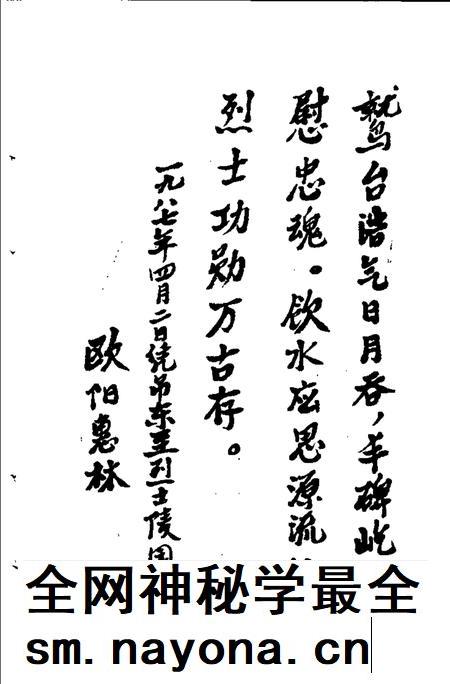 鹫台浩气日月吞，丰碑屹
慰忠魂。饮水应思源流
烈士功勋万古存。
一九八七年四月二日凭吊东至烈士陵园
欧阳惠林
全网神秘学最全
sm.nayona.cn